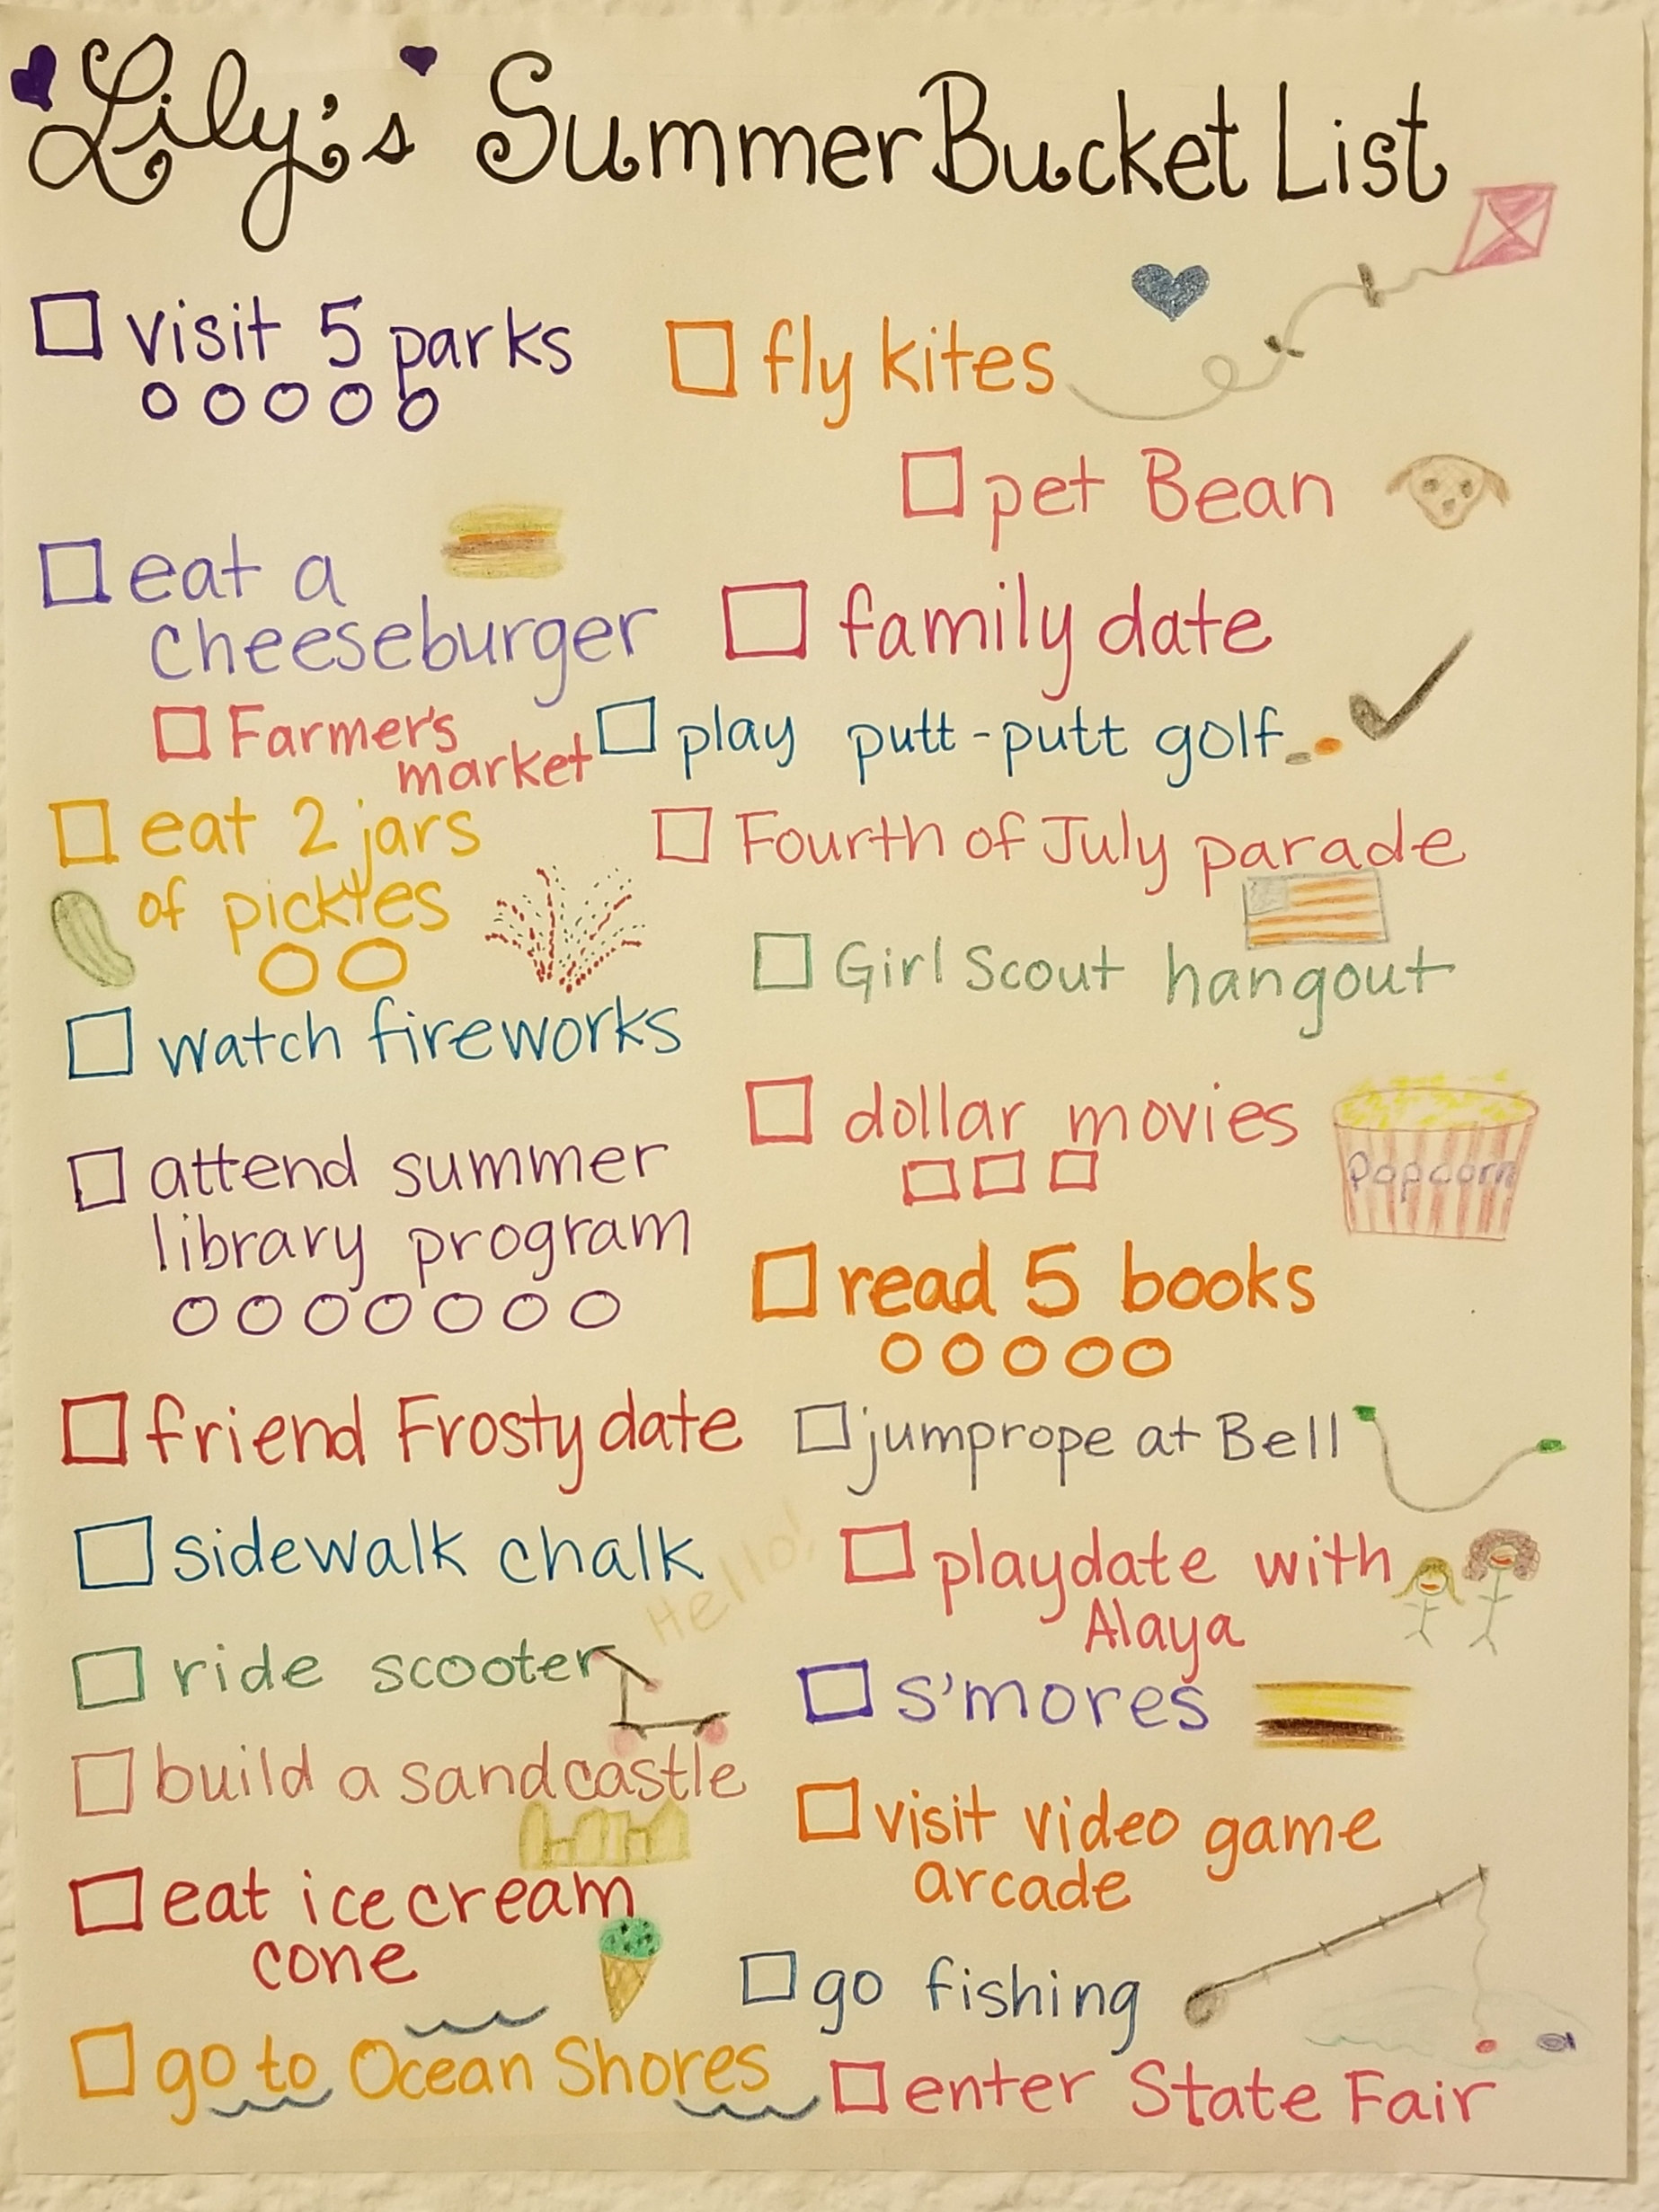 Lily's Summer Bucket List
visit 5 parks
fly kites
pet Bean
eat a
cheeseburger
family date
Farmer's
market
play putt-putt golf
eat 2 jars
of pickles
Fourth of July parade
Girl Scout hangout
watch fireworks
dollar movies
Popcorn
attend summer
library program
read 5 books
friend Frosty date
jumprope at Bell
sidewalk chalk
Hello!
playdate with
Alaya
ride scooter
s'mores
build a sandcastle
visit video game
arcade
eat ice cream
cone
go fishing
go to Ocean Shores
enter State Fair